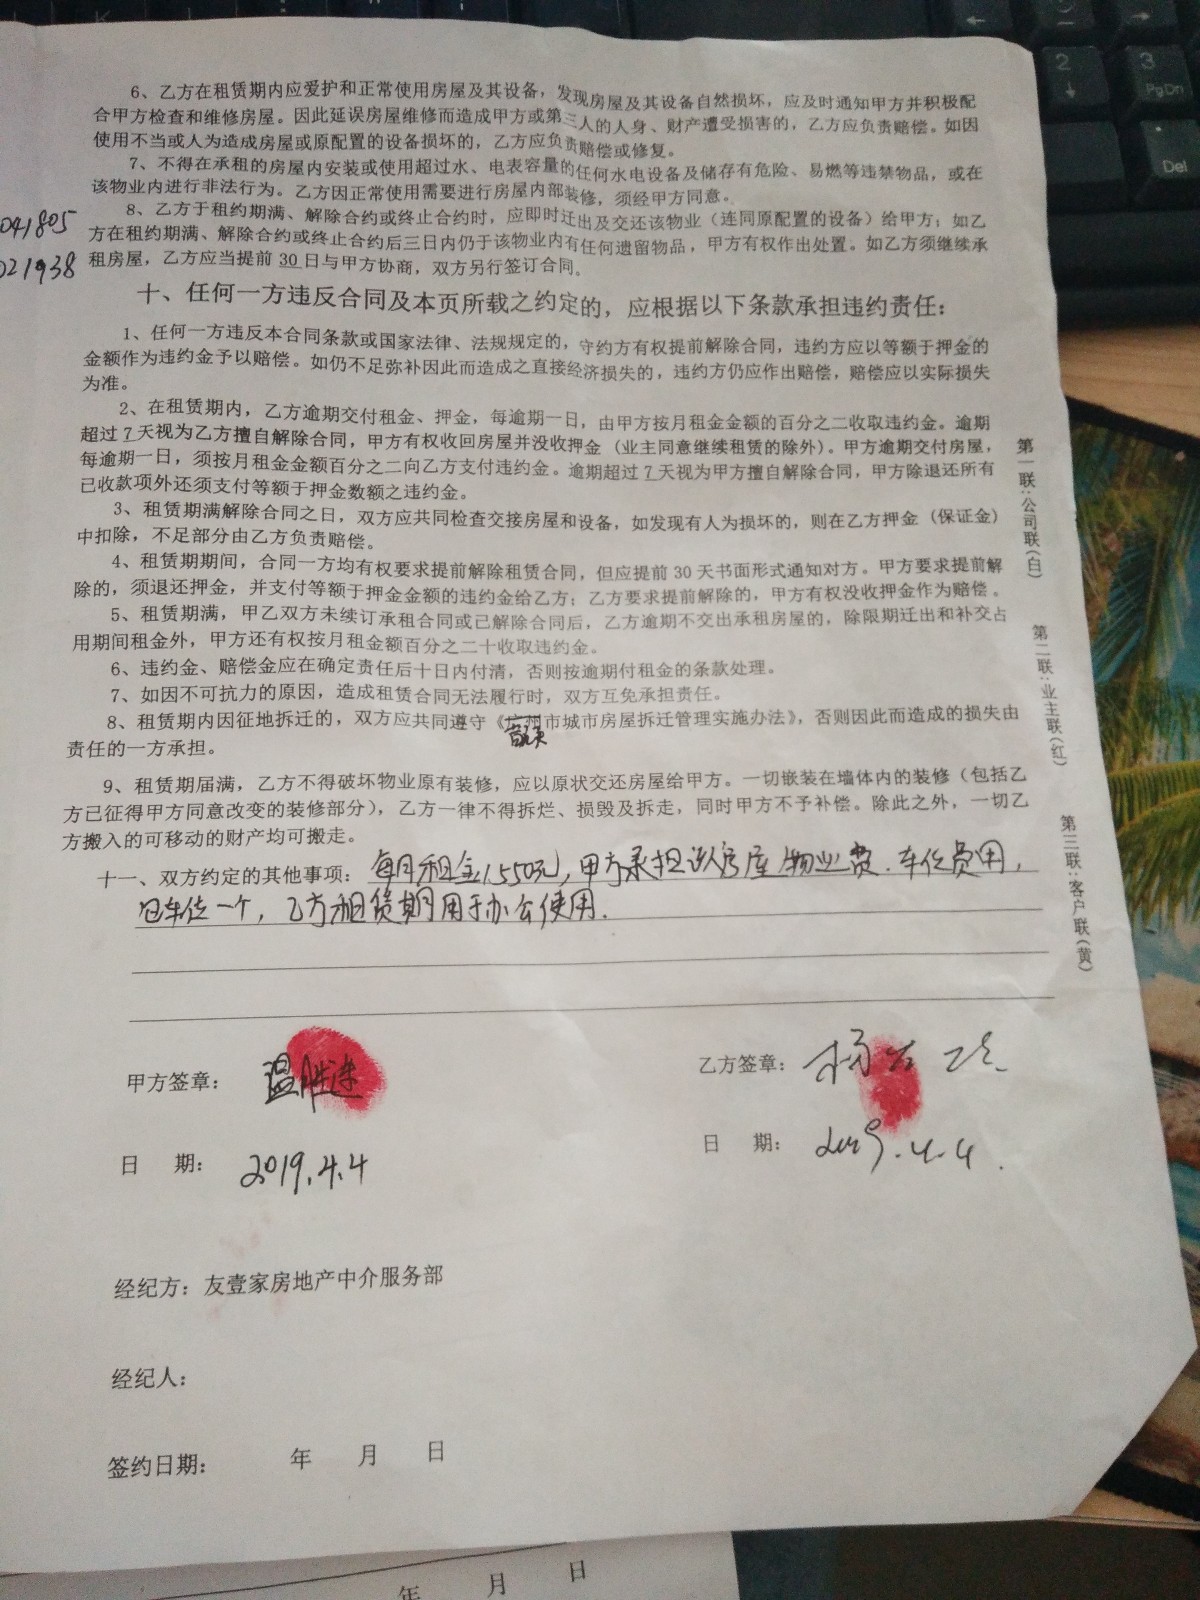 6、乙方在租赁期内应爱护和正常使用房屋及其设备，发现房屋及其设备自然损坏，应及时通知甲方并积极配
合甲方检查和维修房屋。因此延误房屋维修而造成甲方或第三人的人身、财产遭受损害的，乙方应负责赔偿。如因
使用不当或人为造成房屋或原配置的设备损坏的，乙方应负责赔偿或修复。
7、不得在承租的房屋内安装或使用超过水、电表容量的任何水电设备及储存有危险、易燃等违禁物品，或在
该物业内进行非法行为。乙方因正常使用需要进行房屋内部装修，须经甲方同意。
041805
8、乙方于租约期满、解除合约或终止合约时，应即时迁出及交还该物业（连同原配置的设备）给甲方；如乙
方在租约期满、解除合约或终止合约后三日内仍于该物业内有任何遗留物品，甲方有权作出处置。如乙方须继续承
021938
租房屋，乙方应当提前 30 日与甲方协商，双方另行签订合同。
十、任何一方违反合同及本页所载之约定的，应根据以下条款承担违约责任：
1、任何一方违反本合同条款或国家法律、法规规定的，守约方有权提前解除合同，违约方应以等额于押金的
金额作为违约金予以赔偿。如仍不足弥补因此而造成之直接经济损失的，违约方仍应作出赔偿，赔偿应以实际损失
为准。
2、在租赁期内，乙方逾期交付租金、押金，每逾期一日，由甲方按月租金金额的百分之二收取违约金。逾期
超过 7 天视为乙方擅自解除合同，甲方有权收回房屋并没收押金（业主同意继续租赁的除外）。甲方逾期交付房屋，
每逾期一日，须按月租金金额百分之二向乙方支付违约金。逾期超过 7 天视为甲方擅自解除合同，甲方除退还所有
已收款项外还须支付等额于押金数额之违约金。
3、租赁期满解除合同之日，双方应共同检查交接房屋和设备，如发现有人为损坏的，则在乙方押金（保证金）
中扣除，不足部分由乙方负责赔偿。
4、租赁期期间，合同一方均有权要求提前解除租赁合同，但应提前 30 天书面形式通知对方。甲方要求提前解
除的，须退还押金，并支付等额于押金金额的违约金给乙方；乙方要求提前解除的，甲方有权没收押金作为赔偿。
5、租赁期满，甲乙双方未续订承租合同或已解除合同后，乙方逾期不交出承租房屋的，除限期迁出和补交占
用期间租金外，甲方还有权按月租金额百分之二十收取违约金。
6、违约金、赔偿金应在确定责任后十日内付清，否则按逾期付租金的条款处理。
7、如因不可抗力的原因，造成租赁合同无法履行时，双方互免承担责任。
8、租赁期内因征地拆迁的，双方应共同遵守《广州市城市房屋拆迁管理实施办法》，否则因此而造成的损失由
责任的一方承担。
9、租赁期届满，乙方不得破坏物业原有装修，应以原状交还房屋给甲方。一切嵌装在墙体内的装修（包括乙
方已征得甲方同意改变的装修部分），乙方一律不得拆烂、损毁及拆走，同时甲方不予补偿。除此之外，一切乙
方搬入的可移动的财产均可搬走。
十一、双方约定的其他事项：每月租金1550元，甲方承担该房屋物业费．车位费用，
包车位一个，乙方租赁期用于办公使用．
第一联：公司联（白）
第二联：业主联（红）
第三联：客户联（黄）
甲方签章：温胜
乙方签章：杨
日 期：2019.4.4
日 期：2019.4.4.
经纪方：友壹家房地产中介服务部
经纪人：
签约日期： 年 月 日
年 月 日
2
3
PgDn
Del